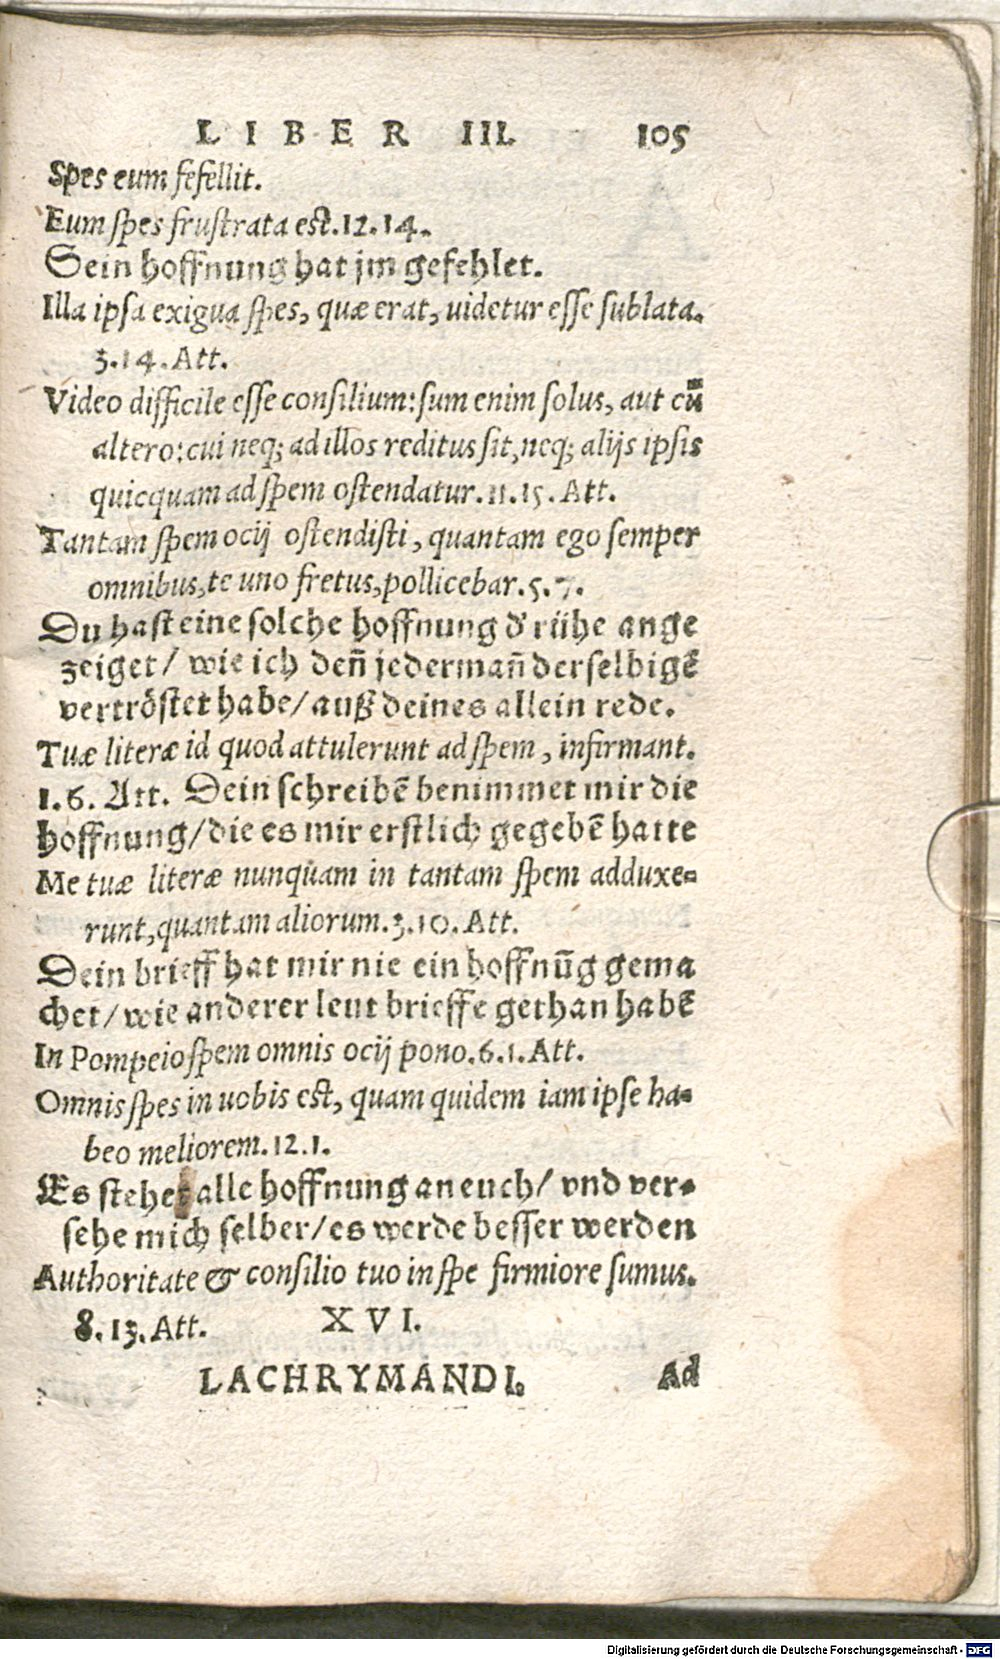 LIBER III. 105
Spes eum fefellit.
Eum spes frustrata est.12.14.
Sein hoffnung hat jm gefehlet.
Illa ipsa exigua spes, quæ erat, uidetur esse sublata.
3.14.Att.
Video difficile esse consilium: sum enim solus, aut cū
altero: cui neq; ad illos reditus sit, neq; alijs ipsis
quicquam ad spem ostendatur.11.15.Att.
Tantam spem ocij ostendisti, quantam ego semper
omnibus, te uno fretus, pollicebar.5.7.
Du hast eine solche hoffnung d' rühe ange
zeiget/ wie ich deñ jedermañ derselbigē
vertröstet habe/ auß deines allein rede.
Tuæ literæ id quod attulerunt ad spem, infirmant.
1.6. Att. Dein schreibē benimmet mir die
hoffnung/ die es mir erstlich gegebē hatte
Me tuæ literæ nunquam in tantam spem adduxe-
runt, quantam aliorum.3.10.Att.
Dein brieff hat mir nie ein hoffnūg gema
chet/ wie anderer leut brieffe gethan habē
In Pompeio spem omnis ocij pono.6.1.Att.
Omnis spes in uobis est, quam quidem iam ipse ha-
beo meliorem.12.1.
Es stehet alle hoffnung an euch/ vnd ver-
sehe mich selber/ es werde besser werden
Authoritate & consilio tuo in spe firmiore sumus.
8.13.Att. XVI.
LACHRYMANDI. Ad
Digitalisierung gefördert durch die Deutsche Forschungsgemeinschaft - DFG